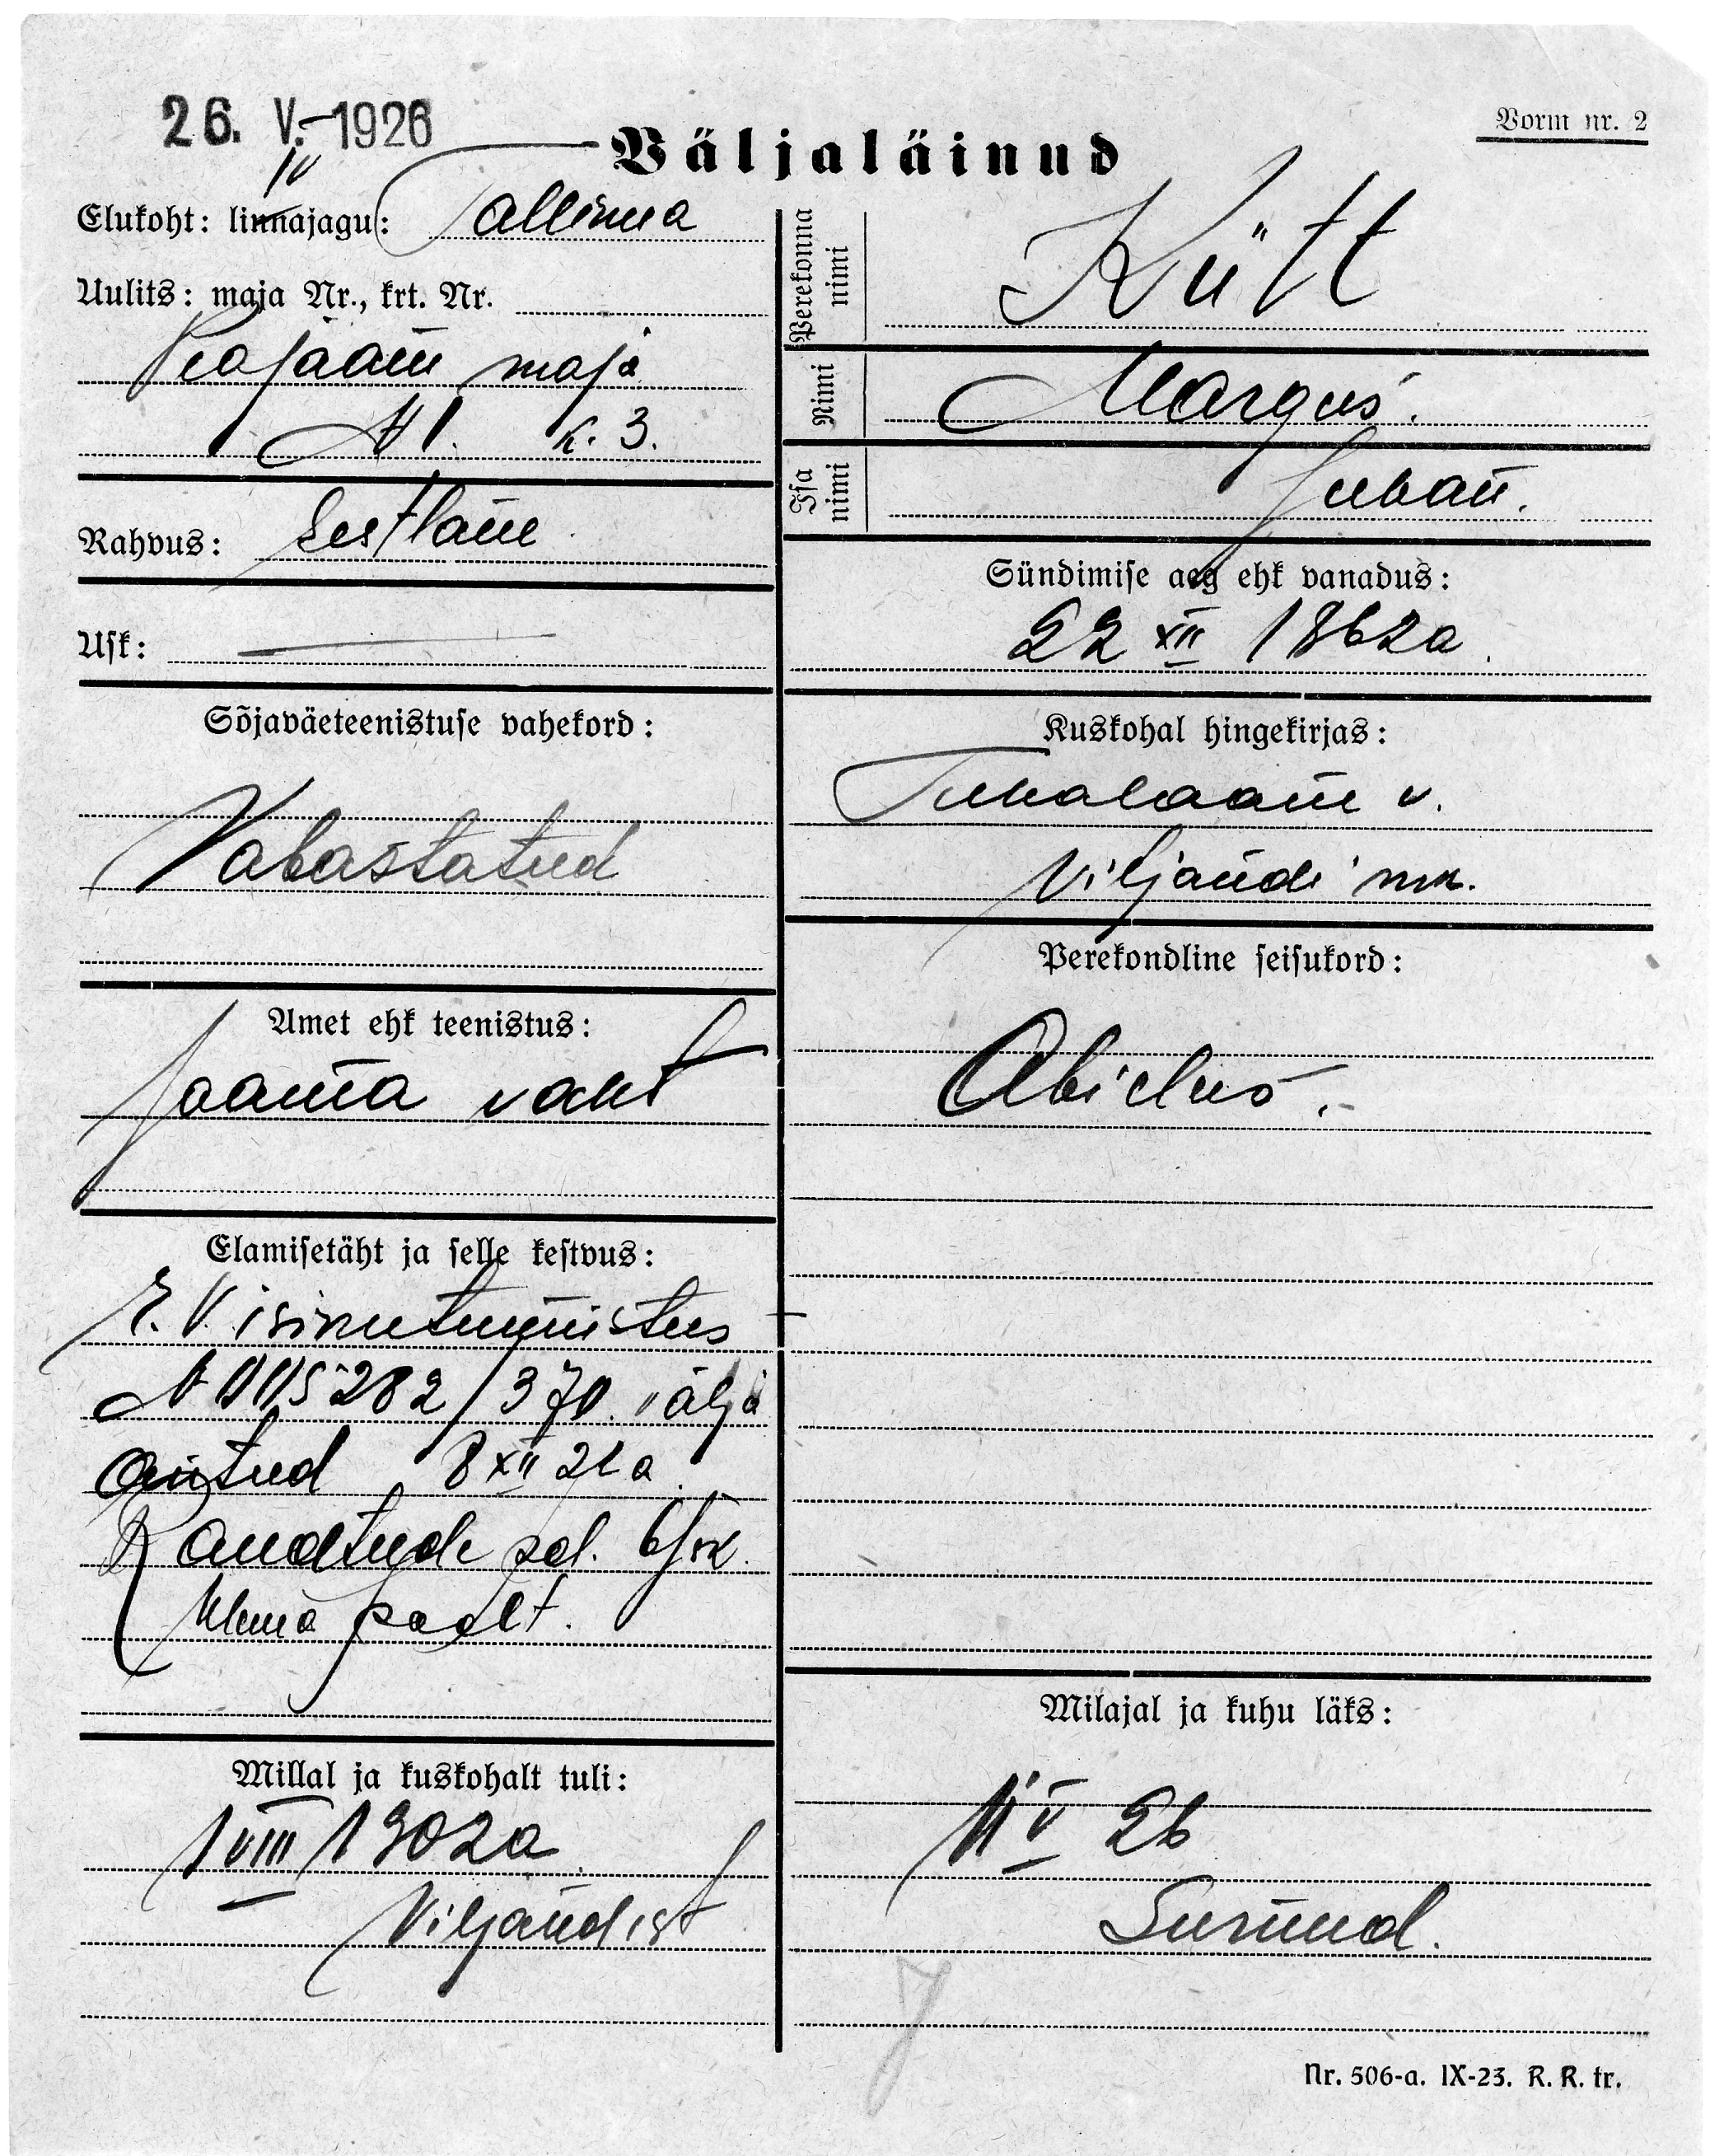 26. V. 1926
Vorm nr. 2
Väljaläinud
IV
Elukoht: linnajagu: Tallinna
Uulits: maja Nr., krt. Nr.
Peajaam maja
№ 1. k. 3.
Rahvus: Eestlane
Usk: —
Sõjaväeteenistuse vahekord:
Vabastatud
Amet ehk teenistus:
Jaama vaht
Elamisetäht ja selle kestvus:
E. V isikutunnistus
№ 005282/370. välja
antud 8 XII 21 a
Raudtede pol. 6 jsk.
ülema poolt.
Millal ja kuskohalt tuli:
1 VIII 1902 a
Viljandist
Perekonna nimi
Kütt
Nimi
Margus.
Isa nimi
Juhan.
Sündimise aeg ehk vanadus:
22 XII 1862 a.
Kuskohal hingekirjas:
Tuhalaane v.
Viljandi mk.
Perekondline seisukord:
Abielus.
Milajal ja kuhu läks:
11 V 26
Surnud.
Nr. 506-a. IX-23. R. R. tr.